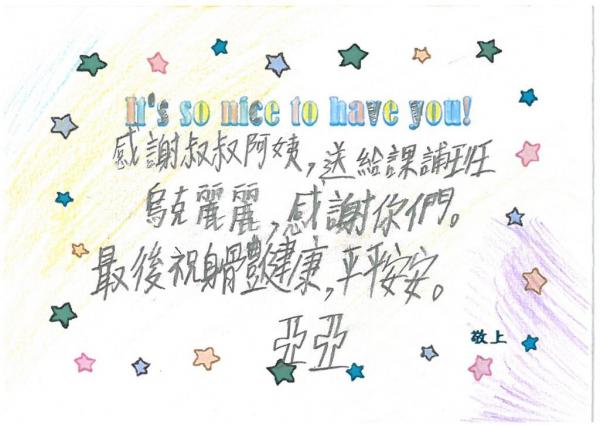 It's so nice to have you!
感謝叔叔阿姨,送給課輔班
烏克麗麗,感謝你們。
最後祝身體健康,平平安安。
敬上
亞亞